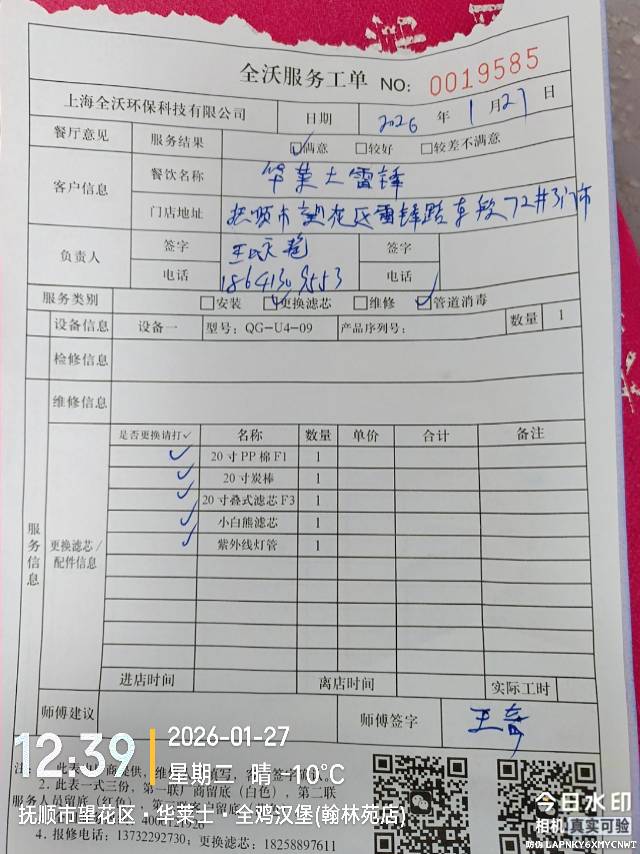 全沃服务工单 NO: 0019585
上海全沃环保科技有限公司 日期 2026 年 1 月 27 日
餐厅意见 服务结果 ☑满意 □较好 □较差不满意
客户信息 餐饮名称 华莱士雷锋
门店地址 抚顺市望花区雷锋路东段72#3门市
负责人 签字 签字
电话 电话
服务类别 □安装 ☑更换滤芯 □维修 ☑管道消毒
设备信息 设备一 型号: QG-U4-09 产品序列号: 数量 1
检修信息
维修信息
服务信息
更换滤芯/配件信息
是否更换请打✓ 名称 数量 单价 合计 备注
✓ 20寸PP棉F1 1
✓ 20寸炭棒 1
✓ 20寸叠式滤芯F3 1
✓ 小白熊滤芯 1
✓ 紫外线灯管 1
进店时间 离店时间 实际工时
师傅建议 师傅签字
12:39 2026-01-27
星期二 晴 -10°C
抚顺市望花区·华莱士·全鸡汉堡(翰林苑店)
2.此表一式三份,第一联厂商留底(白色),第二联
4.报修电话:13732292730;更换滤芯:18258897611
今日水印
相机 真实可验
防伪 LAPNKY6XMYCNWT